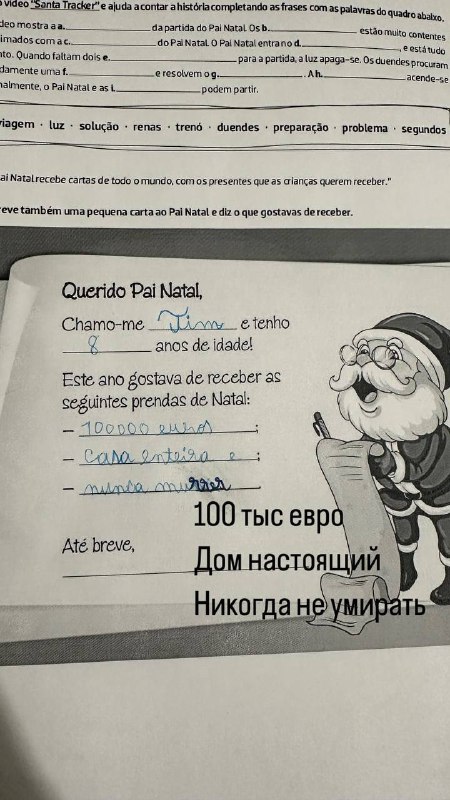 vídeo "Santa Tracker" e ajuda a contar a história completando as frases com as palavras do quadro abaixo.
deo mostra a a. da partida do Pai Natal. Os b. estão muito contentes
imados com a c. do Pai Natal. O Pai Natal entra no d. , e está tudo
nto. Quando faltam dois e. para a partida, a luz apaga-se. Os duendes procuram
damente uma f. e resolvem o g. . A h. acende-se
nalmente, o Pai Natal e as i. podem partir.
viagem · luz · solução · renas · trenó · duendes · preparação · problema · segundos
ai Natal recebe cartas de todo o mundo, com os presentes que as crianças querem receber."
reve também uma pequena carta ao Pai Natal e diz o que gostavas de receber.
Querido Pai Natal,
Chamo-me Tim e tenho
8 anos de idade!
Este ano gostava de receber as
seguintes prendas de Natal:
– 100000 euros ;
– casa enteira e ;
– nunca murrer .
100 тыс евро
Até breve,
Дом настоящий
Никогда не умирать